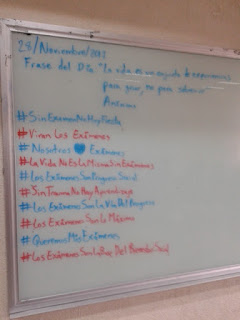 28/Noviembre/2017
Frase del Día "La vida es un conjunto de experiencias
para gozar, no para sobrevivir"
Anónimo
#SinExamenNoHayFiesta
#Vivan Los Exámenes
#Nosotros 💙 Exámenes
#LaVidaNoEsLaMismaSinExámenes
#Los ExámenesSonProgreso Social
#SinTraumaNoHayAprendizaje
#LosExámenesSonLaVíaDelProgreso
#LosExámenes Son Lo Máximo
#QueremosMásExámenes
#LosExámenesSon Del Bienestar Social